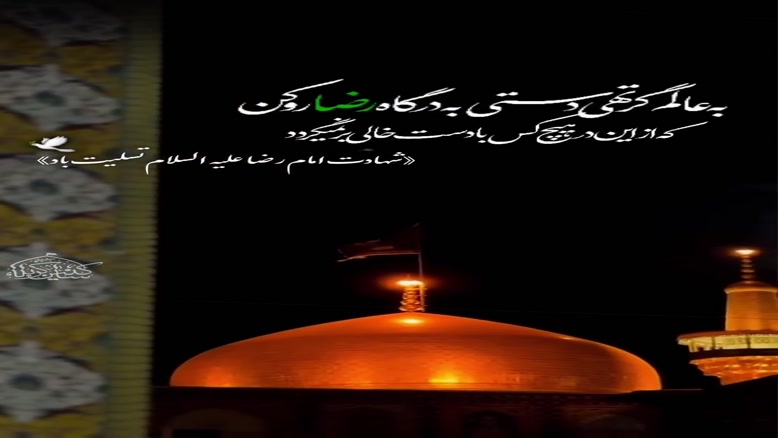 به عالم گر تهی دستی به درگاه رضا رو کن
که از این در هیچ کس با دست خالی بر نمیگردد
«شهادت امام رضا علیه السلام تسلیت باد»